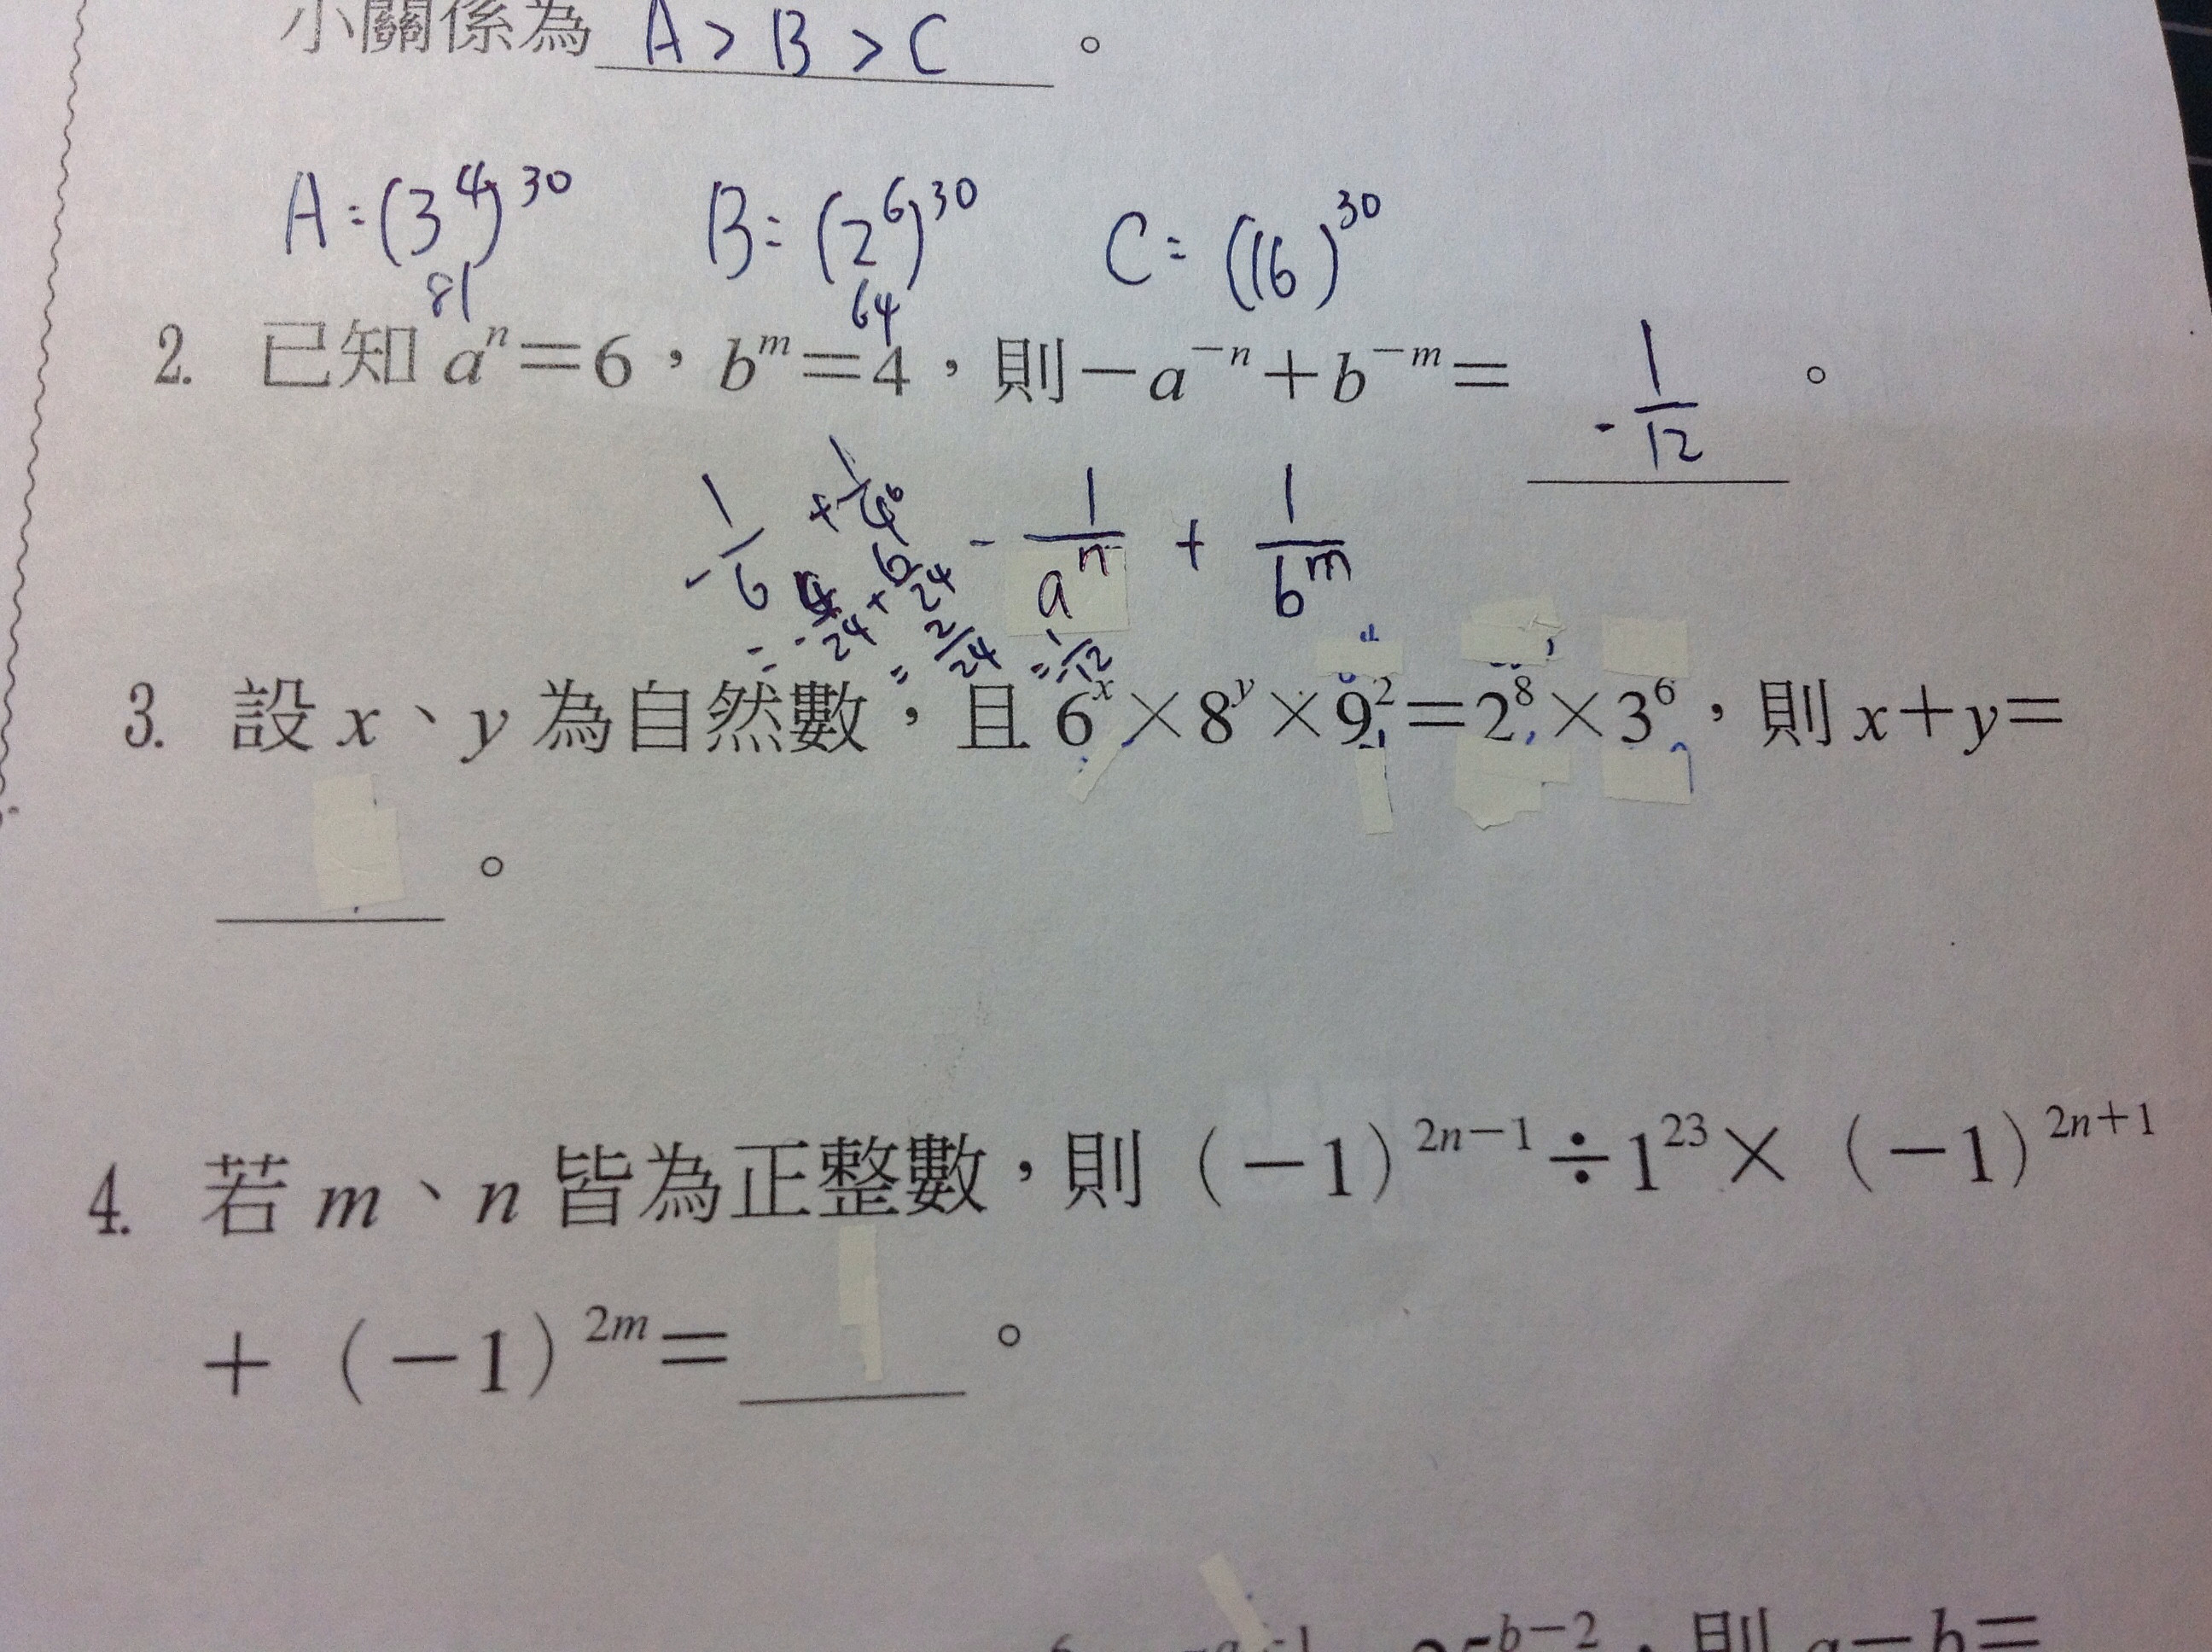 小關係為 A > B > C 。
A = (3⁴)³⁰ B = (2⁶)³⁰ C = (16)³⁰
81 64
2. 已知 aⁿ＝6，bᵐ＝4，則－a⁻ⁿ＋b⁻ᵐ＝ -1/12 。
-1/6 + 1/4 - 1/aⁿ + 1/bᵐ
= -4/24 + 6/24 = 2/24 = 1/12
3. 設 x、y 為自然數，且 6ˣ×8ʸ×9²＝2⁸×3⁶，則 x＋y＝
。
4. 若 m、n 皆為正整數，則（－1）²ⁿ⁻¹÷1²³×（－1）²ⁿ⁺¹
＋（－1）²ᵐ＝ 。
ᵇ⁻²，則 a－b＝